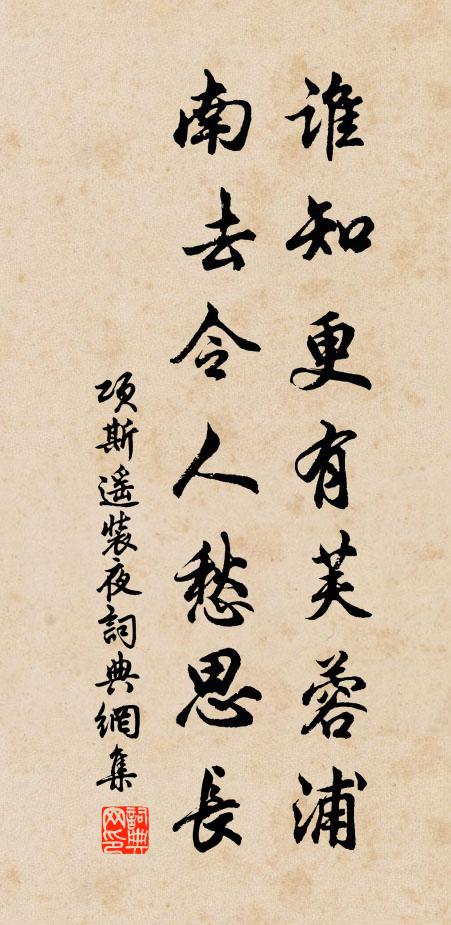 谁知更有芙蓉浦
南去令人愁思長
项斯遥裝夜詞典網集
詞典网印